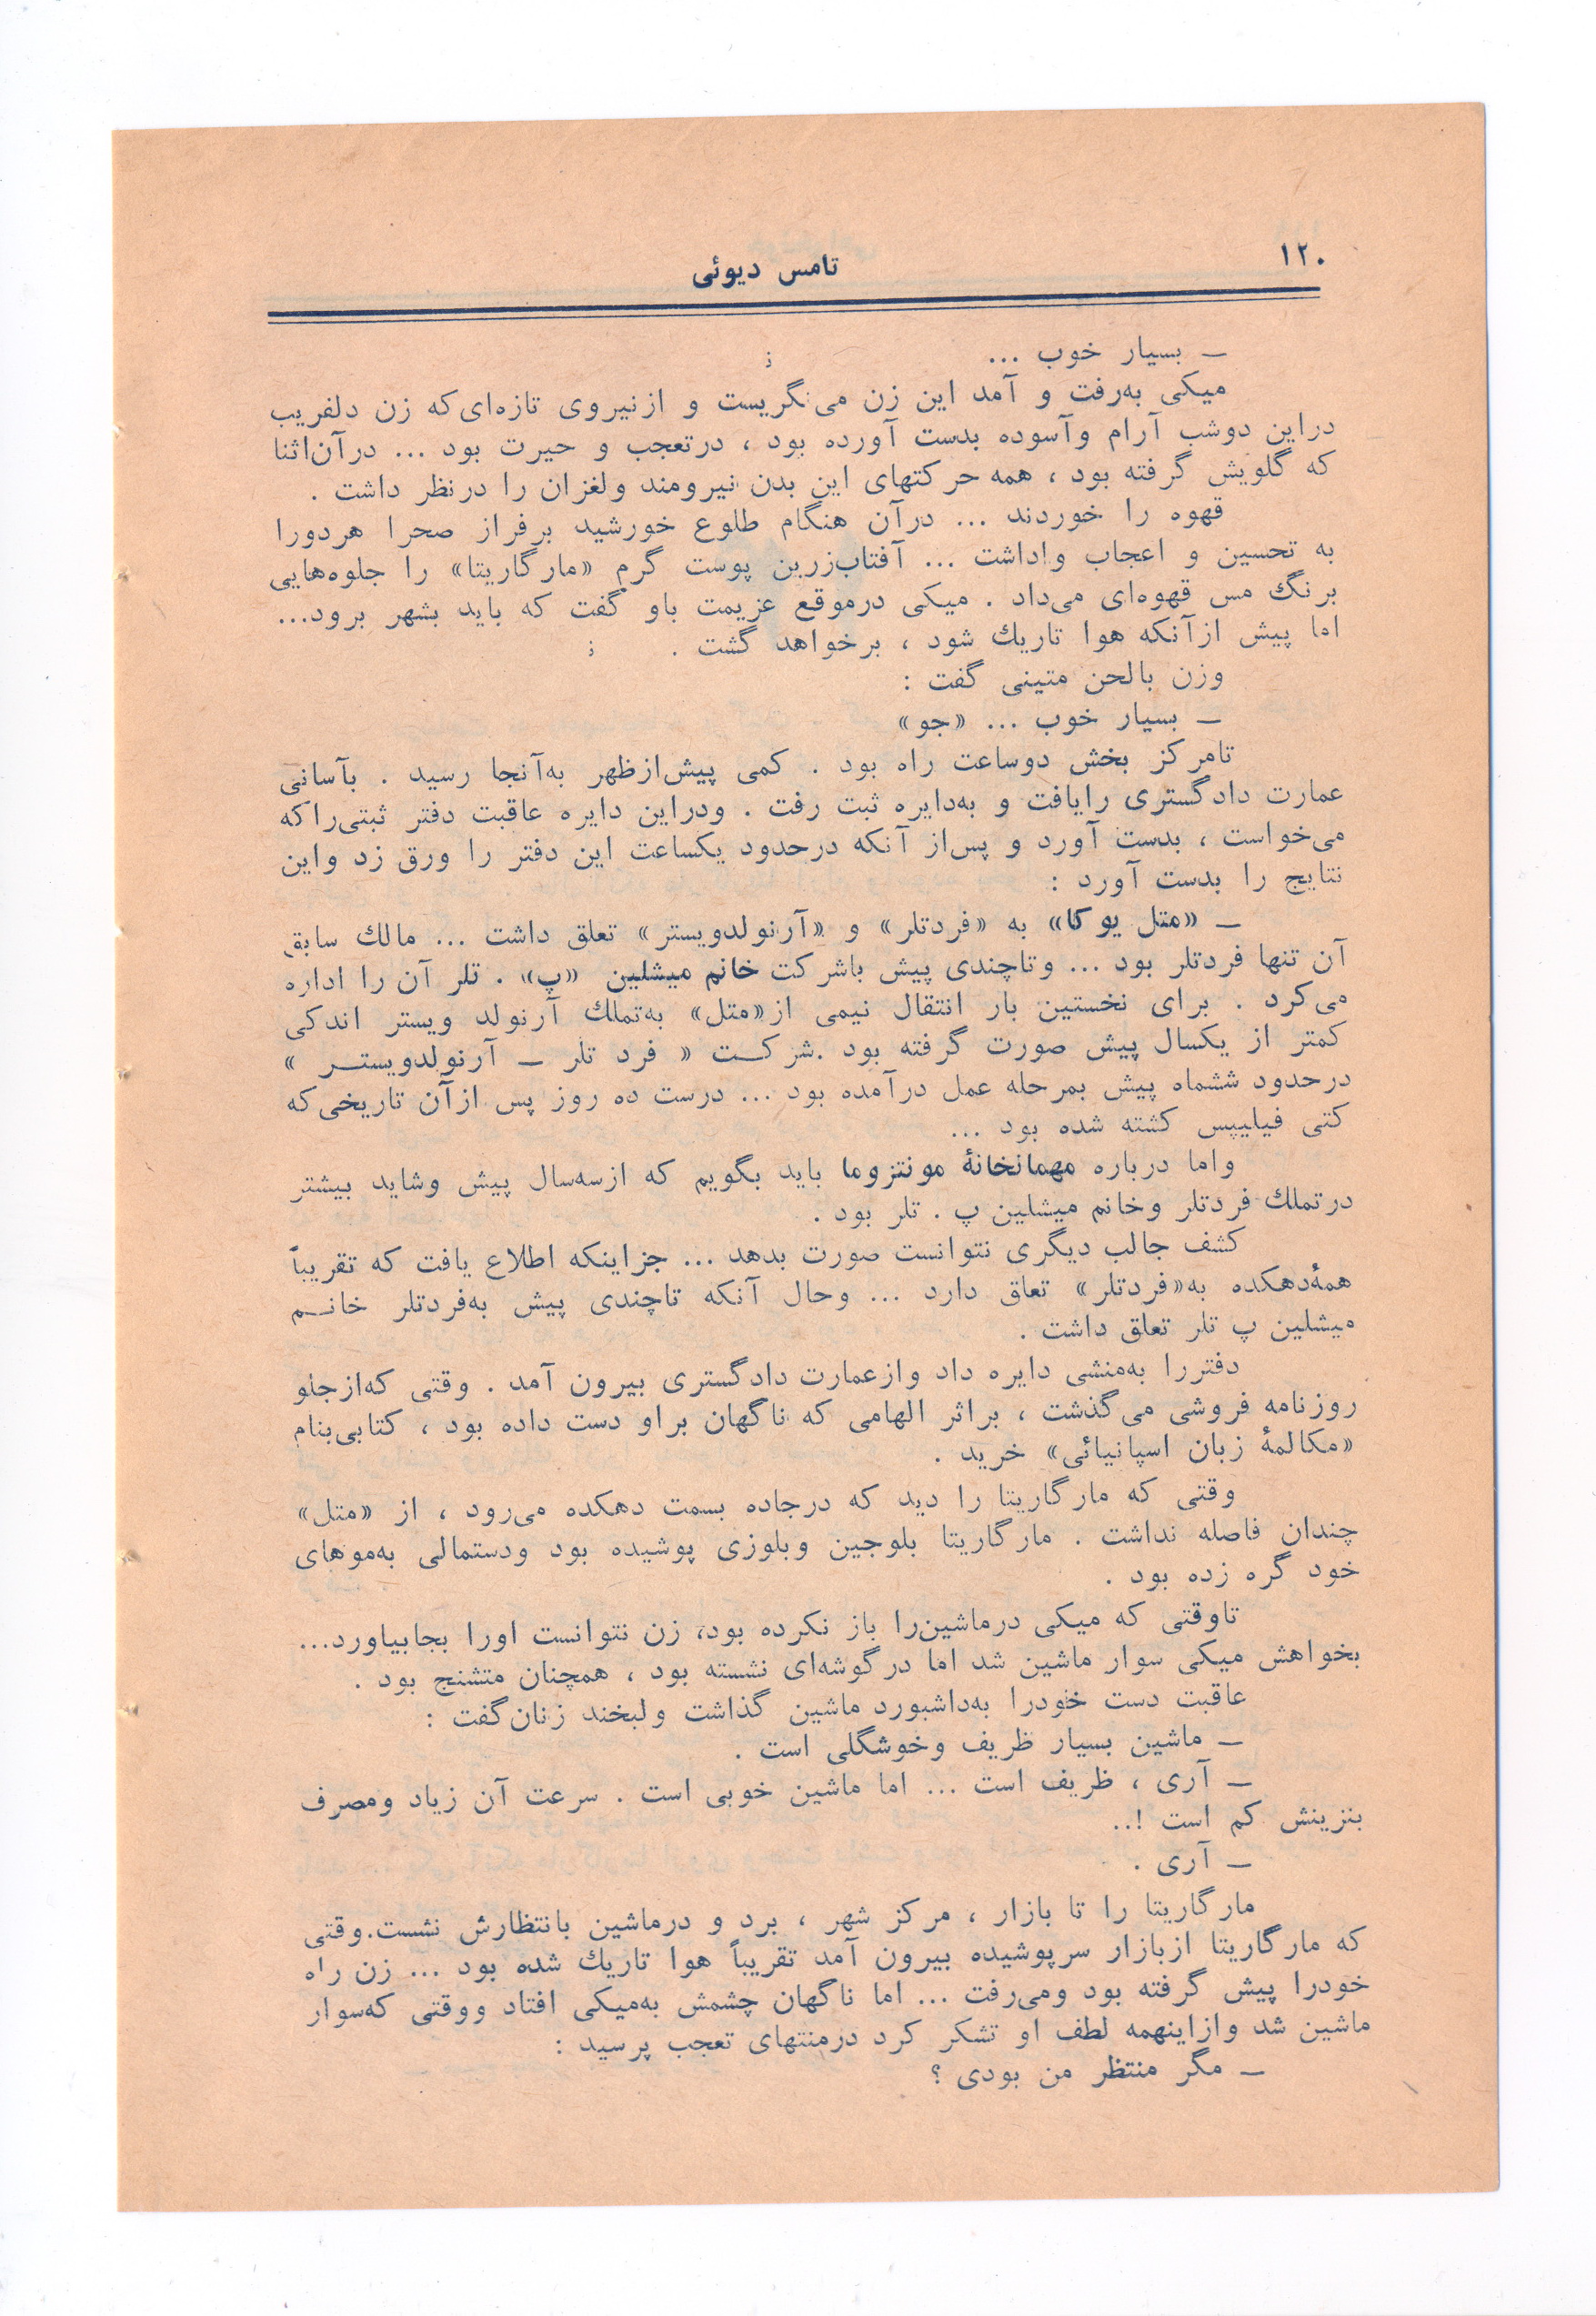 ۱۲۰
تامس دیوئی
ــ بسیار خوب ...
میکی به‌رفت و آمد این زن می‌نگریست و ازنیروی تازه‌ای‌که زن دلفریب
دراین دوشب آرام وآسوده بدست آورده بود ، درتعجب و حیرت بود ... درآن‌اثنا
که گلویش گرفته بود ، همه حرکتهای این بدن نیرومند ولغزان را درنظر داشت .
قهوه را خوردند ... درآن هنگام طلوع خورشید برفراز صحرا هردورا
به تحسین و اعجاب واداشت ... آفتاب‌زرین پوست گرم «مارگاریتا» را جلوه‌هایی
برنگ مس قهوه‌ای می‌داد . میکی درموقع عزیمت باو گفت که باید بشهر برود...
اما پیش ازآنکه هوا تاریك شود ، برخواهد گشت .
وزن بالحن متینی گفت :
ــ بسیار خوب ... «جو»
تامرکز بخش دوساعت راه بود . کمی پیش‌ازظهر به‌آنجا رسید . بآسانی
عمارت دادگستری رایافت و به‌دایره ثبت رفت . ودراین دایره عاقبت دفتر ثبتی‌راکه
می‌خواست ، بدست آورد و پس‌از آنکه درحدود یکساعت این دفتر را ورق زد واین
نتایج را بدست آورد :
ــ «متل یوکا» به «فردتلر» و «آرنولدویستر» تعلق داشت ... مالك سابق
آن تنها فردتلر بود ... وتاچندی پیش باشرکت خانم میشلین «پ» . تلر آن را اداره
می‌کرد . برای نخستین بار انتقال نیمی از«متل» به‌تملك آرنولد ویستر اندکی
کمتر از یکسال پیش صورت گرفته بود .شرکت « فرد تلر ــ آرنولدویستر »
درحدود ششماه پیش بمرحله عمل درآمده بود ... درست ده روز پس ازآن تاریخی‌که
کتی فیلیپس کشته شده بود ...
واما درباره مهمانخانهٔ مونتزوما باید بگویم که ازسه‌سال پیش وشاید بیشتر
درتملك فردتلر وخانم میشلین پ . تلر بود .
کشف جالب دیگری نتوانست صورت بدهد ... جزاینکه اطلاع یافت که تقریباً
همهٔ‌دهکده به«فردتلر» تعلق دارد ... وحال آنکه تاچندی پیش به‌فردتلر خانم
میشلین پ تلر تعلق داشت .
دفتررا به‌منشی دایره داد وازعمارت دادگستری بیرون آمد . وقتی که‌ازجلو
روزنامه فروشی می‌گذشت ، براثر الهامی که ناگهان براو دست داده بود ، کتابی‌بنام
«مکالمهٔ زبان اسپانیائی» خرید .
وقتی که مارگاریتا را دید که درجاده بسمت دهکده می‌رود ، از «متل»
چندان فاصله نداشت . مارگاریتا بلوجین وبلوزی پوشیده بود ودستمالی به‌موهای
خود گره زده بود .
تاوقتی که میکی درماشین‌را باز نکرده بود، زن نتوانست اورا بجابیاورد...
بخواهش میکی سوار ماشین شد اما درگوشه‌ای نشسته بود ، همچنان متشنج بود .
عاقبت دست خودرا به‌داشبورد ماشین گذاشت ولبخند زنان‌گفت :
ــ ماشین بسیار ظریف وخوشگلی است .
ــ آری ، ظریف است ... اما ماشین خوبی است . سرعت آن زیاد ومصرف
بنزینش کم است !..
ــ آری .
مارگاریتا را تا بازار ، مرکز شهر ، برد و درماشین بانتظارش نشست.وقتی
که مارگاریتا ازبازار سرپوشیده بیرون آمد تقریباً هوا تاریك شده بود ... زن راه
خودرا پیش گرفته بود ومی‌رفت ... اما ناگهان چشمش به‌میکی افتاد ووقتی که‌سوار
ماشین شد وازاینهمه لطف او تشکر کرد درمنتهای تعجب پرسید :
ــ مگر منتظر من بودی ؟